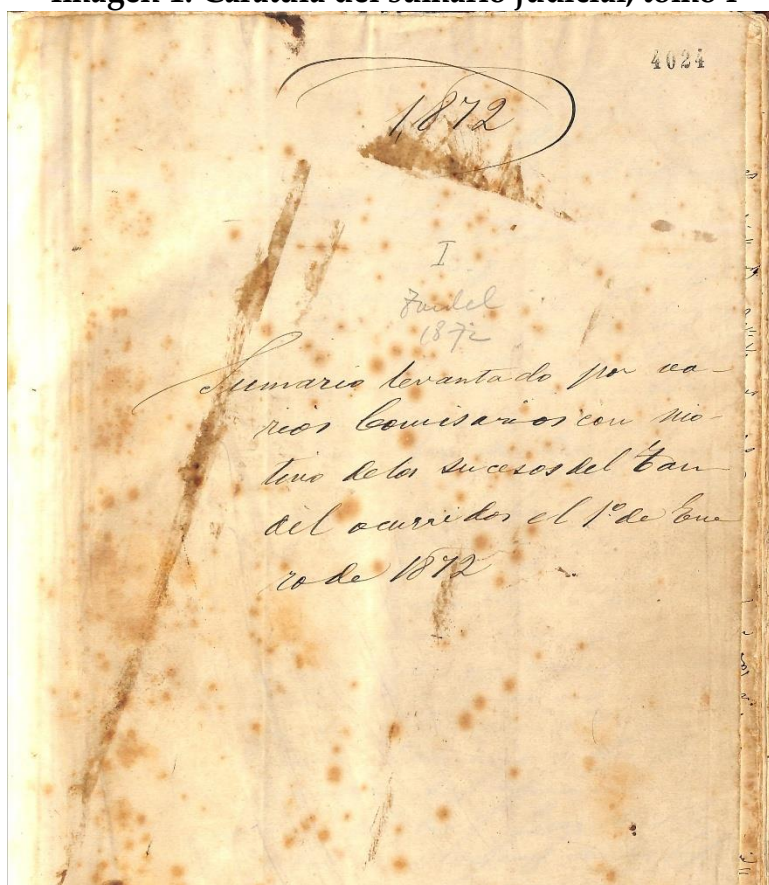 Imagen 1: Carátula del sumario judicial, tomo I
4024
1872
I
Tandil
1872
Sumario levantado por va-
rios Comisarios con mo-
tivo de los sucesos del Tan
dil ocurridos el 1º de Ene
ro de 1872